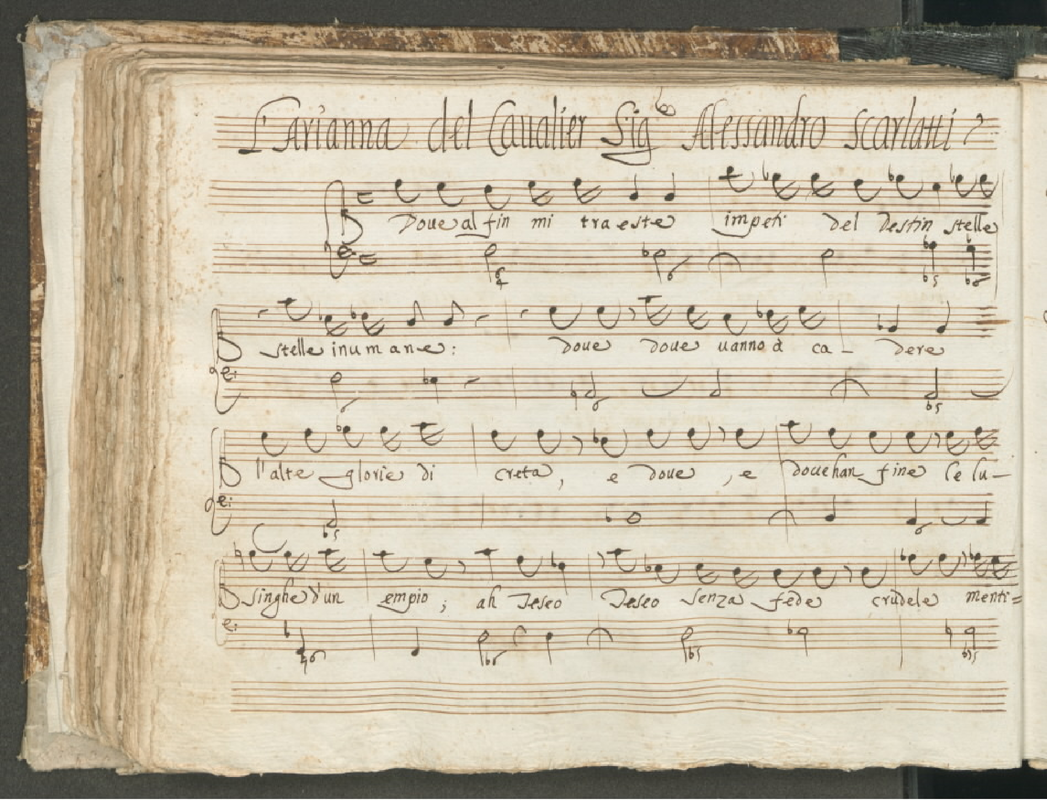 L'Arianna del Caualier Sigre Alessandro Scarlatti
Doue al fin mi traeste impeti del Destin stelle
stelle inumane: doue doue uanno à ca- dere
l'alte glorie di creta, e doue, e doue han fine le lu-
singhe d'un empio; ah Teseo Teseo senza fede crudele menti=